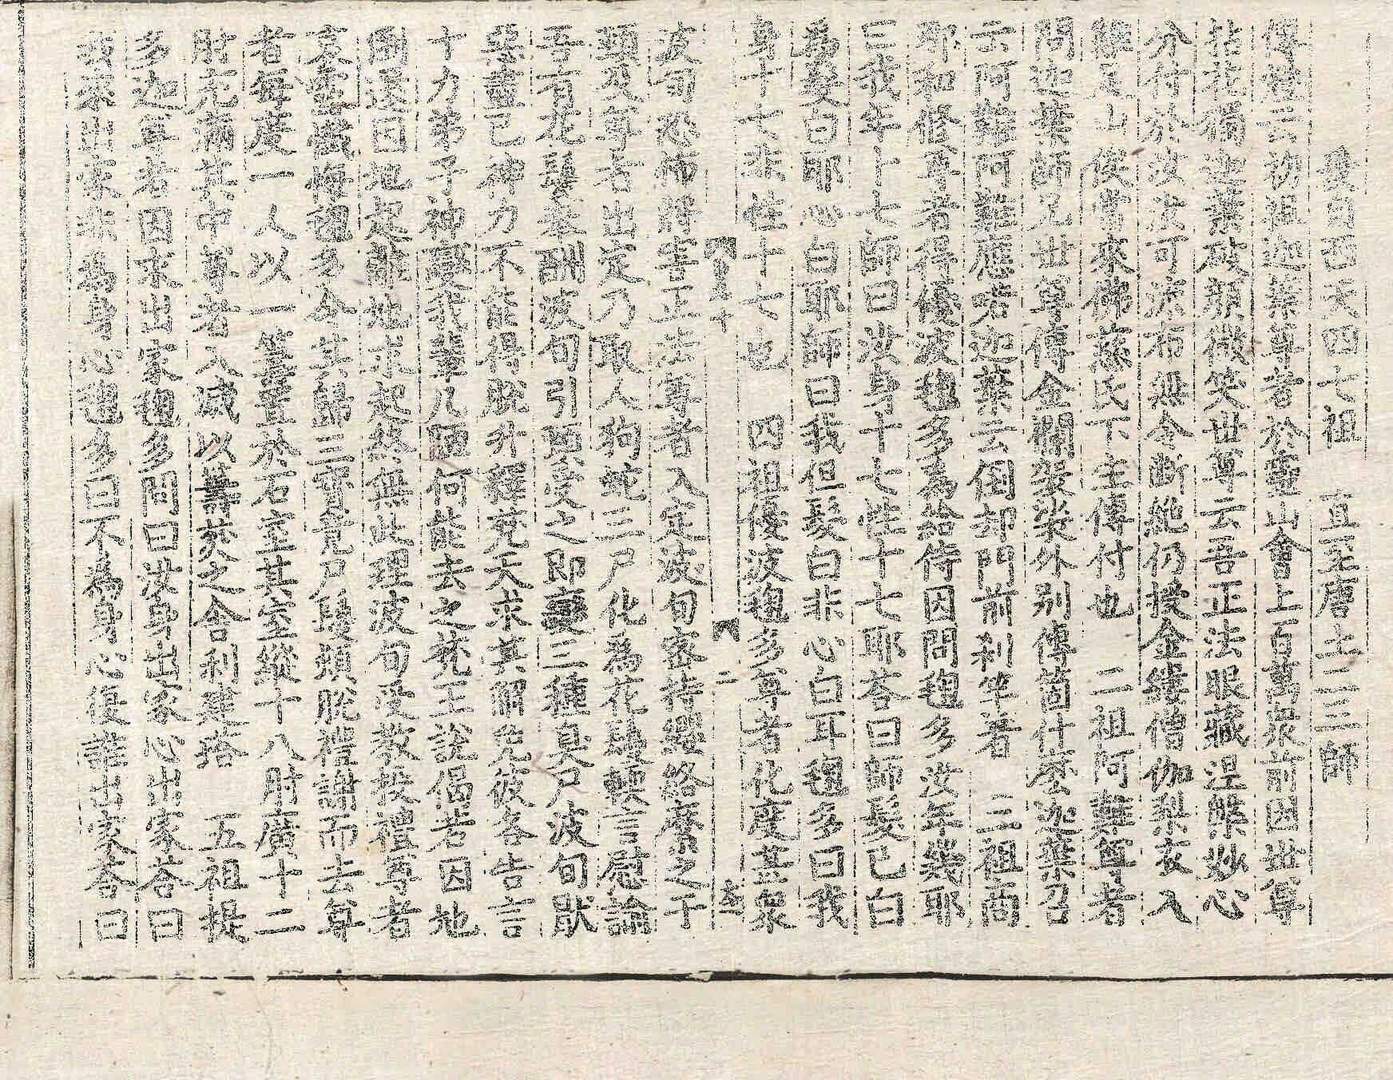 爰自西天四七祖　直至唐土二三師
傳燈云初祖迦葉尊者於靈山會上百萬衆前因世尊
拈花獨迦葉破顏微笑世尊云吾正法眼藏涅槃妙心
分付於汝汝可流布無令斷絶仍授金縷僧伽梨衣入
雞足山俟當來佛慈氏下生傳付也　二祖阿難尊者
問迦葉師兄世尊傳金襴袈裟外別傳箇什麽迦葉召
云阿難阿難應喏迦葉云倒却門前刹竿著　三祖商
那和修尊者得優波毱多為給侍因問毱多汝年幾耶
曰我年十七師曰汝身十七性十七耶荅曰師髮已白
為髮白耶心白耶師曰我但髮白非心白耳毱多曰我
身十七非性十七也　四祖優波毱多尊者化度甚衆
二
波旬恐怖將害正法尊者入定波旬密持纓絡縻之于
頸及尊者出定乃取人狗蛇三尸化為花鬘輭言慰諭
吾有花鬘奉酬波旬引頸受之即變三種臭尸波旬厭
惡盡已神力不能得脫升釋梵天求其解免彼各告言
十力弟子神變我輩凡陋何能去之梵王說偈若因地
倒還因地起離地求起終無此理波旬受教投禮尊者
哀露懺悔毱多令其歸三寳竟尸段頻脫禮謝而去尊
者每度一人以一籌置於石室其室縱十八肘廣十二
肘充滿其中尊者入滅以籌焚之舍利建塔　五祖提
多迦尊者因求出家毱多問曰汝身出家心出家荅曰
我來出家非為身心毱多曰不為身心復誰出家荅曰